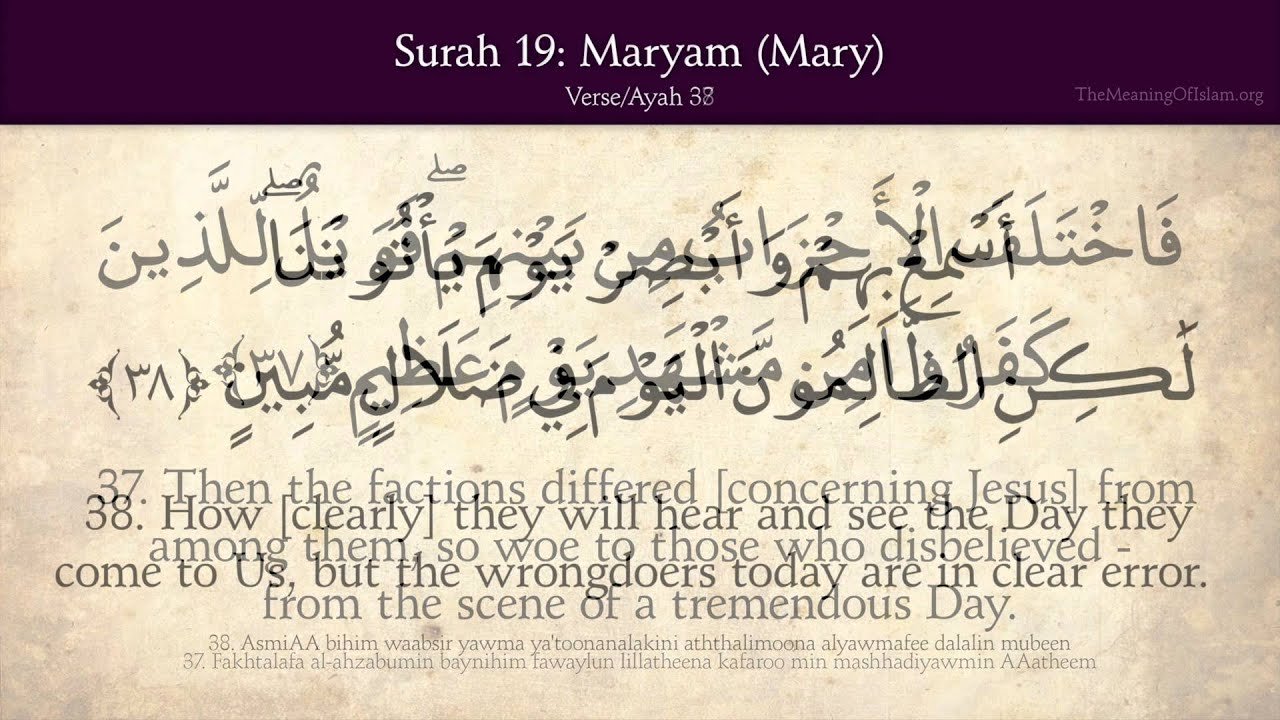 Surah 19: Maryam (Mary)
Verse/Ayah 38
TheMeaningOfIslam.org
فَاخْتَلَفَ الْأَحْزَابُ مِن بَيْنِهِمْ ۖ فَوَيْلٌ لِّلَّذِينَ
أَسْمِعْ بِهِمْ وَأَبْصِرْ يَوْمَ يَأْتُونَنَا ۖ
كَفَرُوا مِن مَّشْهَدِ يَوْمٍ عَظِيمٍ ﴿٣٧﴾
لَٰكِنِ الظَّالِمُونَ الْيَوْمَ فِي ضَلَالٍ مُّبِينٍ ﴿٣٨﴾
37. Then the factions differed [concerning Jesus] from
38. How [clearly] they will hear and see the Day they
among them, so woe to those who disbelieved -
come to Us, but the wrongdoers today are in clear error.
from the scene of a tremendous Day.
38. AsmiAA bihim waabsir yawma ya'toonanalakini aththalimoona alyawmafee dalalin mubeen
37. Fakhtalafa al-ahzabumin baynihim fawaylun lillatheena kafaroo min mashhadiyawmin AAatheem